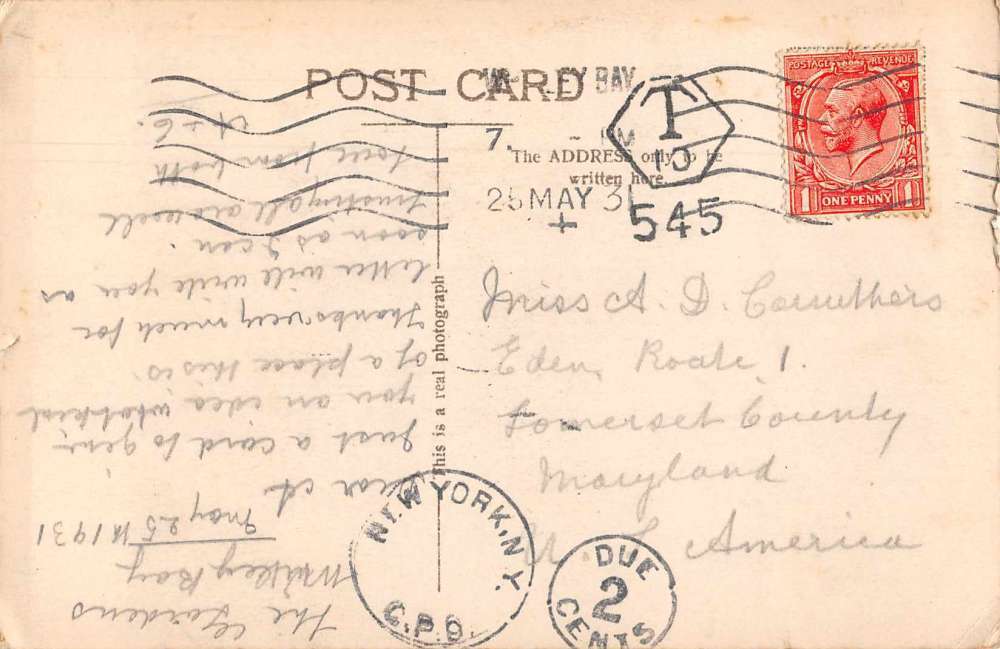 POST CARD
EY BAY
7. - PM
The ADDRESS only to be
written here.
25 MAY 31
+
T
15
545
POSTAGE REVENUE
1 ONE PENNY 1
This is a real photograph
Miss A. D. Carruthers
Eden, Route 1.
Somerset County
Maryland
U. S. America
NEW YORK, N.Y.
G.P.O.
DUE
2
CENTS
The Gardens
Whitley Bay
May 25th 1931
Dear A
Just a card to give
you an idea what kind
of a place this is.
Thanks very much for
letter will write you as
soon as I can.
Trusting all are well
love from both
A & G.